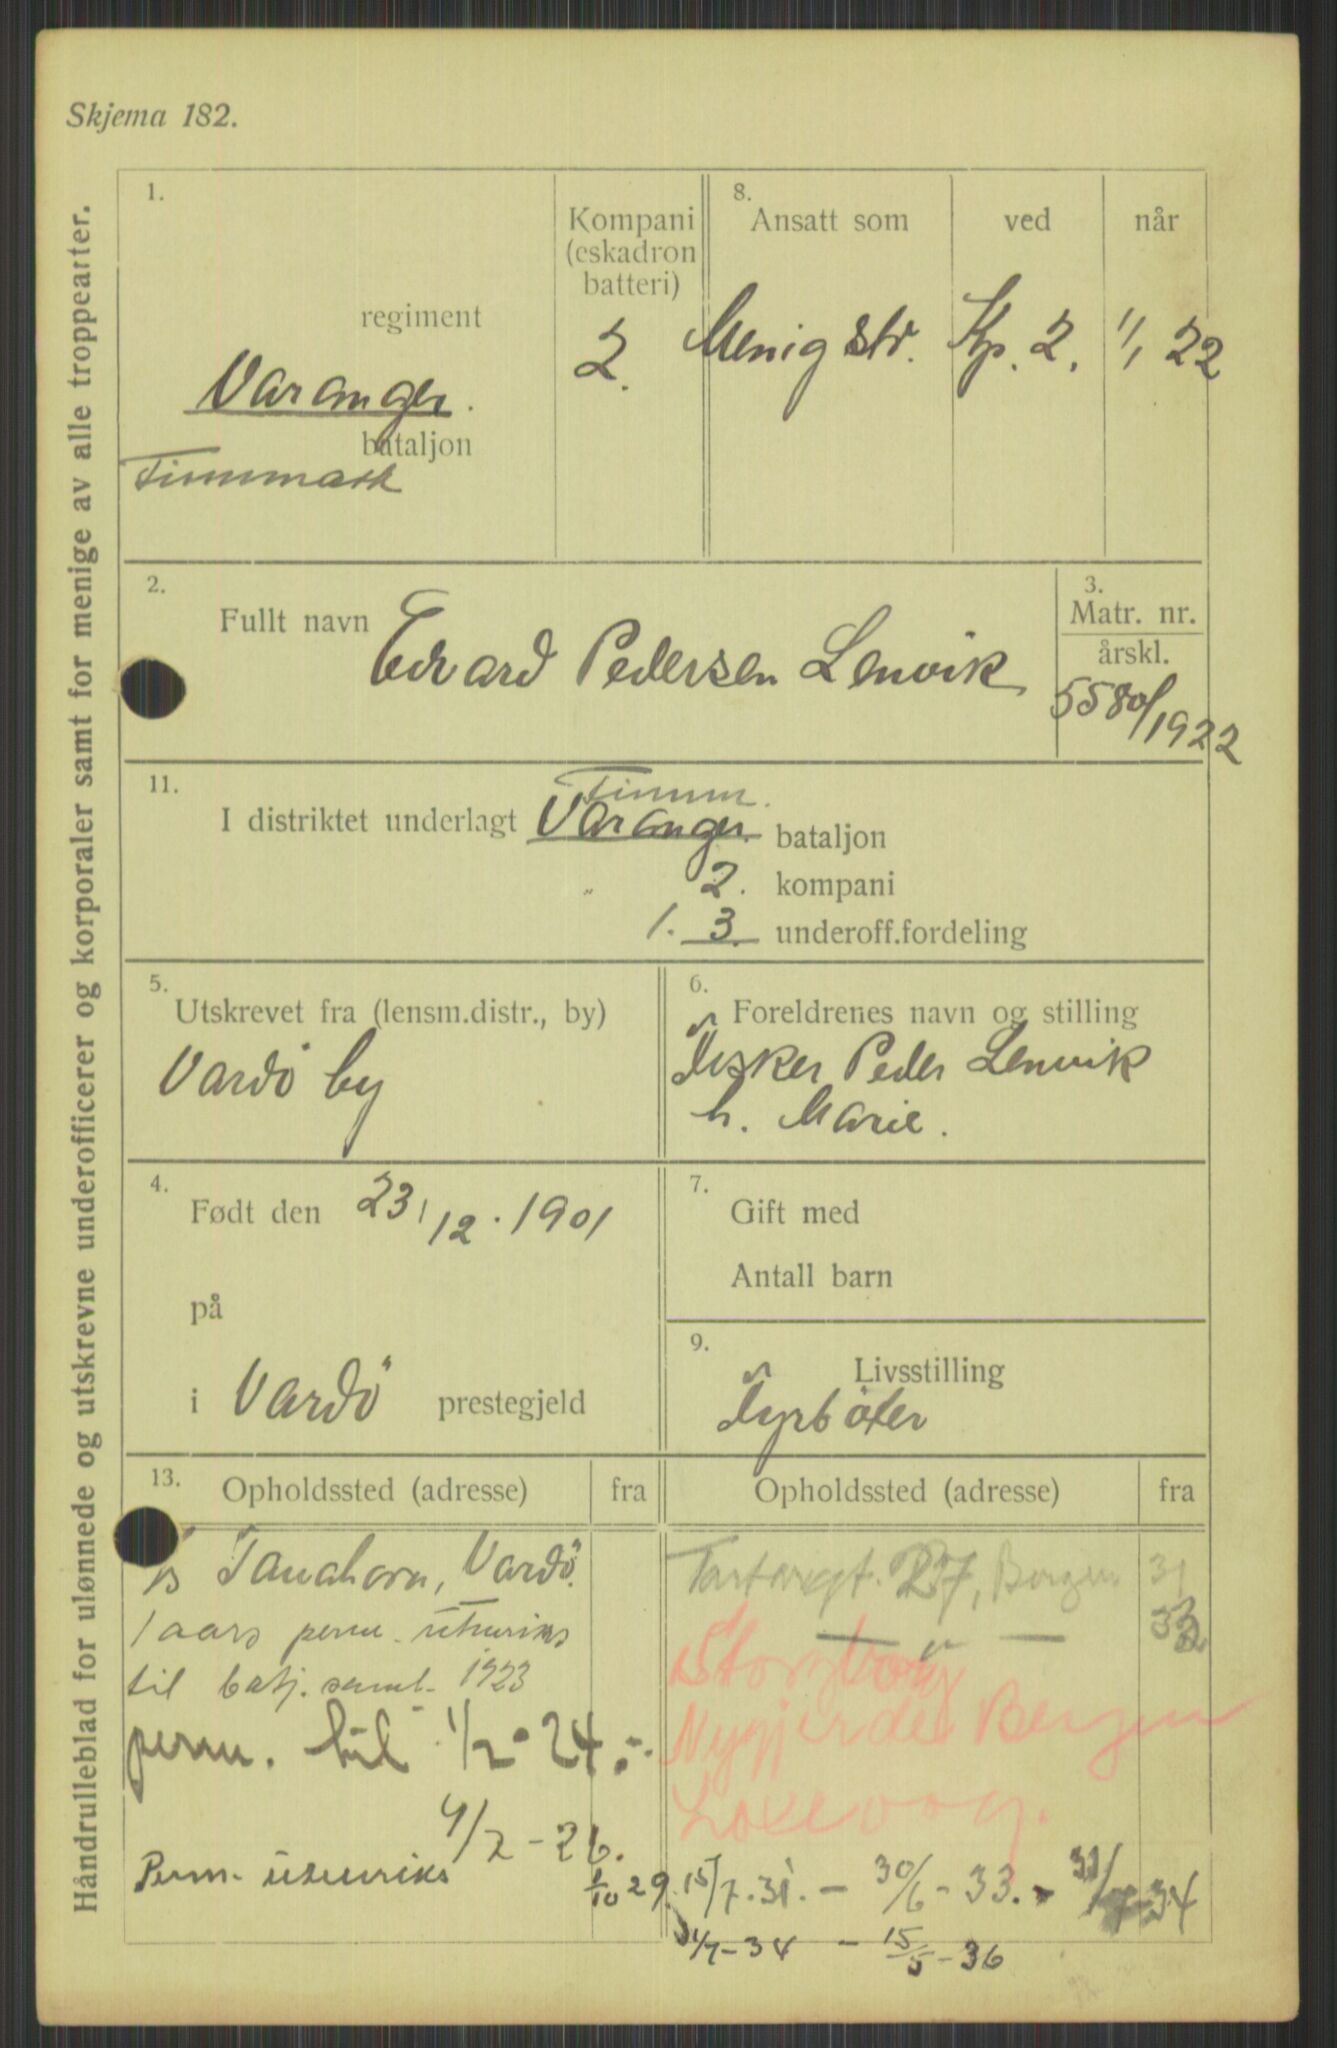 Skjema 182.
Håndrulleblad for ulønnede og utskrevne underofficerer og korporaler samt for menige av alle troppearter.
1.
regiment
Varanger.
bataljon
Finnmark
Kompani
(eskadron
batteri)
2.
8.
Ansatt som
Menig str.
ved
Kp. 2.
når
1/1 22
2.
Fullt navn Edvard Pedersen Lenvik
3.
Matr. nr.
årskl.
5580/1922
11.
Finnm.
I distriktet underlagt Varanger. bataljon
" 2. kompani
1. 3. underoff.fordeling
5.
Utskrevet fra (lensm.distr., by)
Vardö by
6.
Foreldrenes navn og stilling
Fisker Peder Lenvik
h. Marie.
4.
Født den 23/12. 1901
på
i Vardö prestegjeld
7.
Gift med
Antall barn
9.
Livsstilling
Fyrböter
13.
Opholdssted (adresse) fra
Opholdssted (adresse) fra
Tanahorn, Vardö.
1 aars perm. utenriks
til batj. saml. 1923
perm. til 1/2-24.
4/2-26.
Perm. utenriks
1/10 29.
27, Bergen 31
Nygjerdet Bergen
15/7.31. - 30/6-33. - 34
31/7-34 - 15/5-36